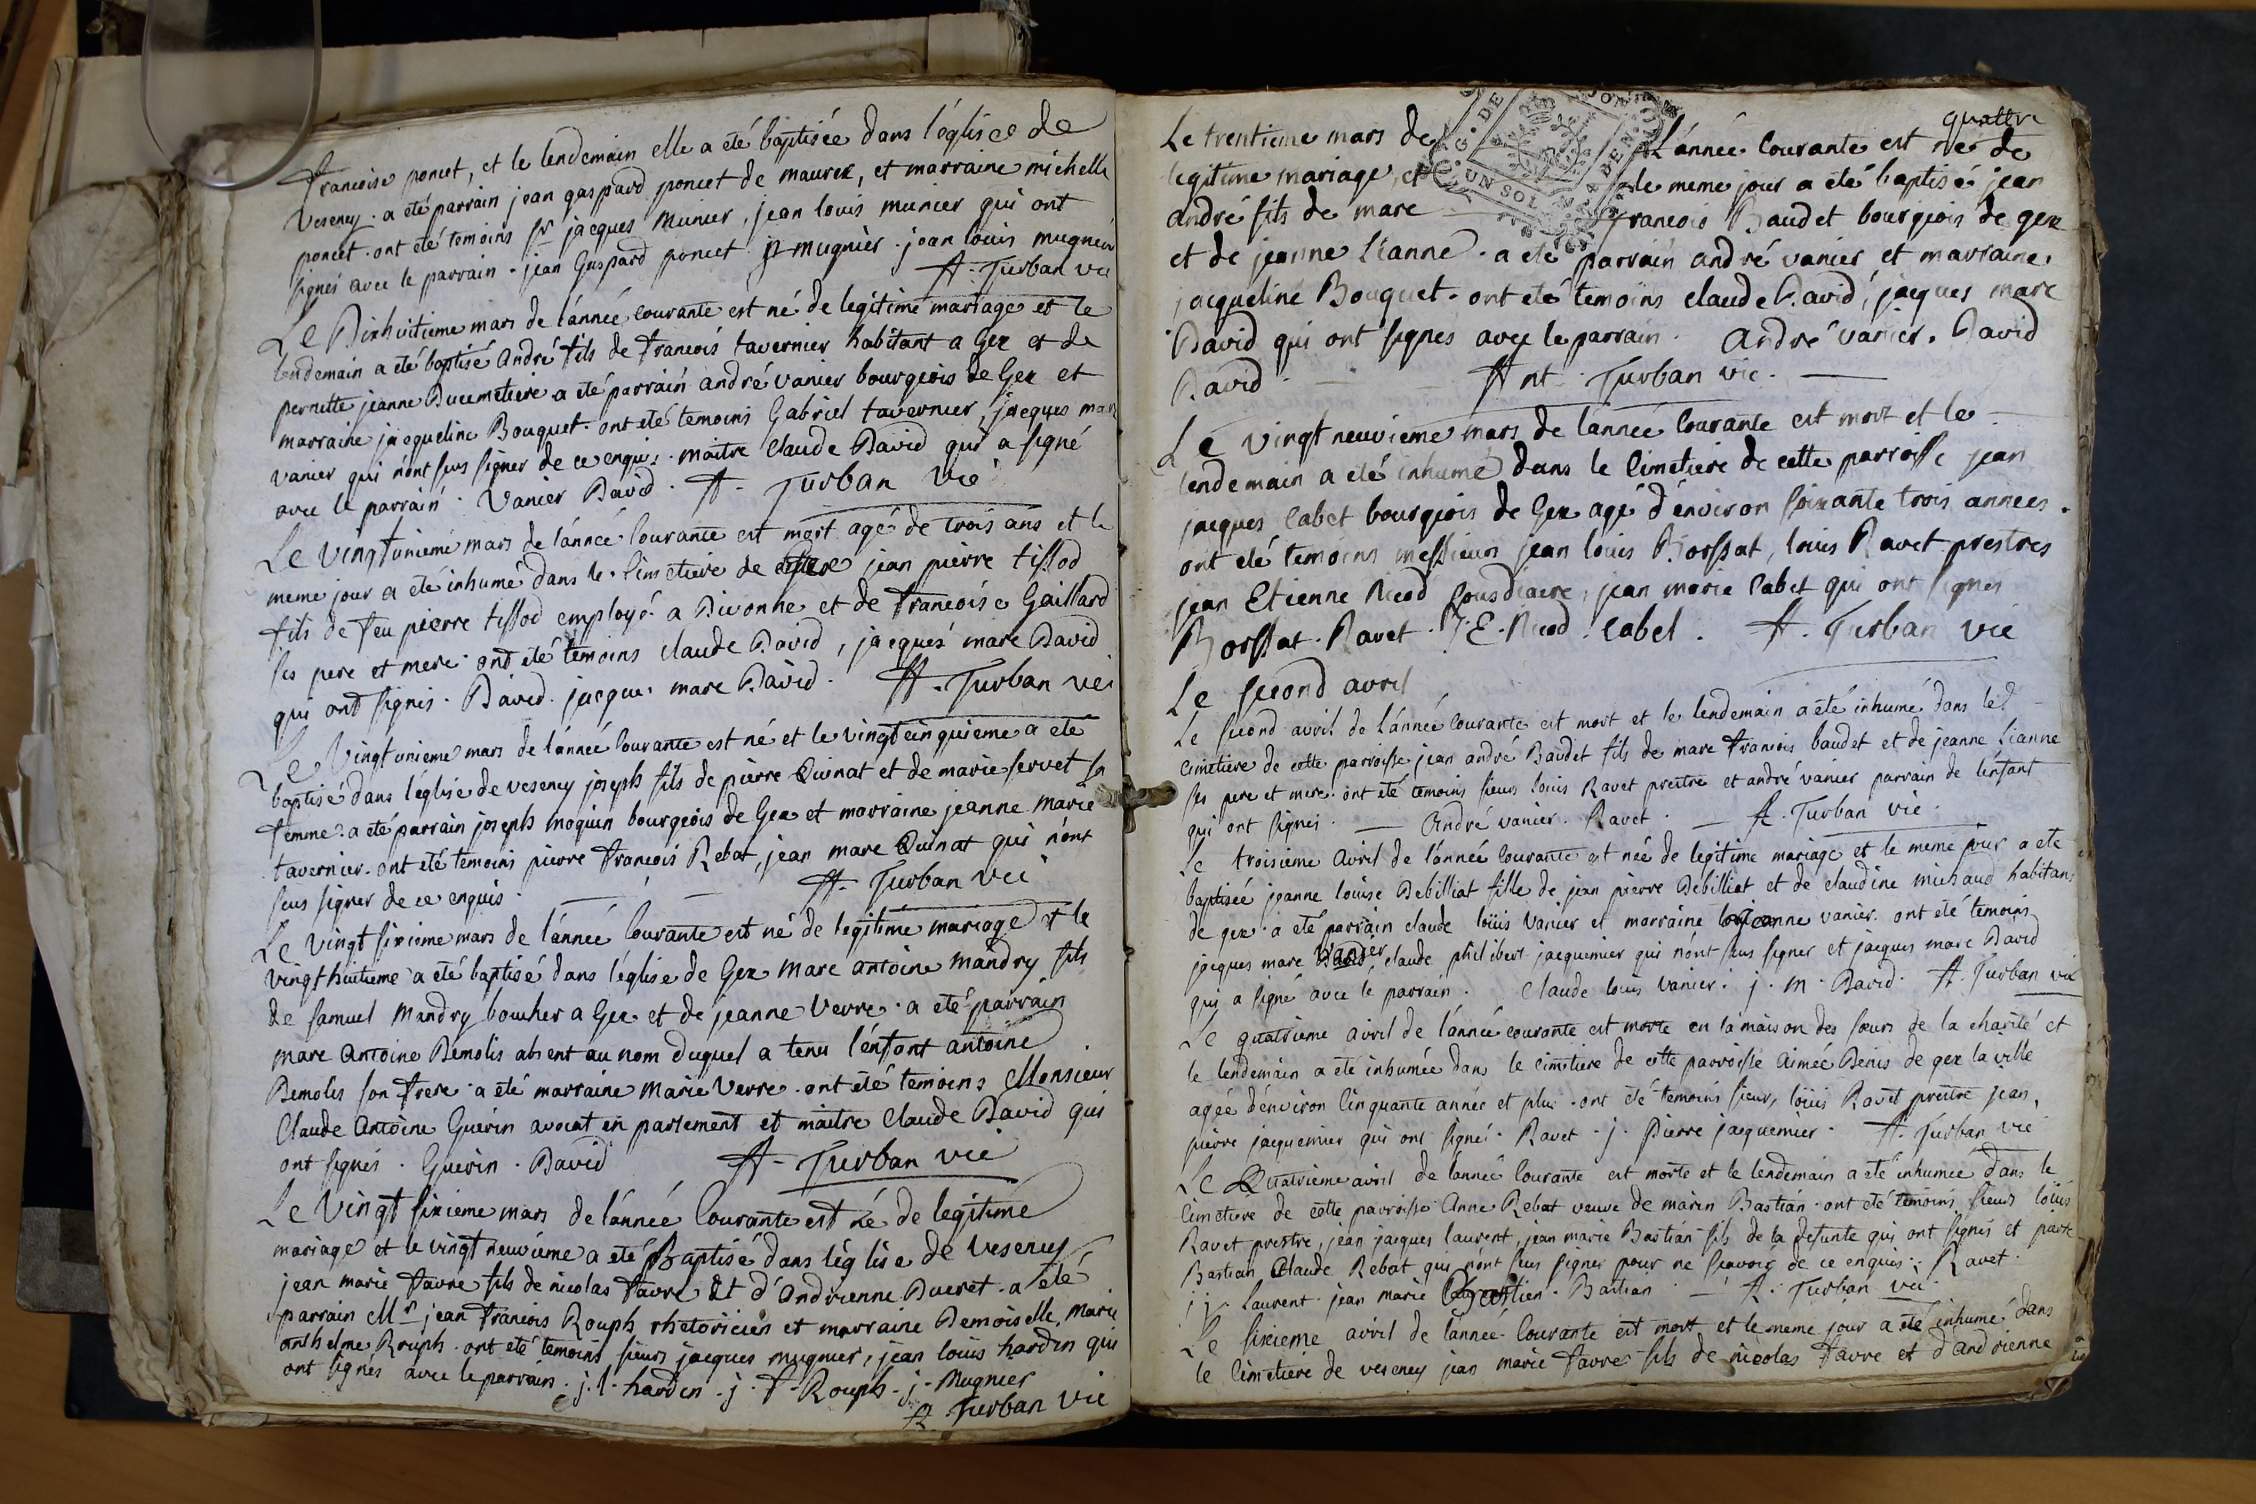 francoise poncet, et le lendemain elle a eté baptisée dans l'église de
Veseney. a eté parrain jean gaspard poncet de maurex, et marraine michelle
poncet. ont eté temoins Sr jacques Munier, jean louis munier qui ont
signés avec le parrain. jean Gaspard poncet. j. mugnier. jean louis mugnier
A. Turban vic
Le Dixhuitieme mars de l'année courante est né de legitime mariage et le
lendemain a eté baptisé André fils de francois tavernier habitant a Gex et de
pernette jeanne Ducimetiere a eté parrain andré vanier bourgeois de Gex et
marraine jacqueline Bouquet. ont eté temoins Gabriel tavernier, jacques marc
vanier qui n'ont sçus signer de ce enquis. maitre Claude David qui a signé
avec le parrain. Vanier David. A. Turban vic
Le vingtunieme mars de l'année courante est mort agé de trois ans et le
meme jour a eté inhumé dans le Cimetiere de jean pierre tissod
fils de feu pierre tissod employé a Divonne et de francoise Gaillard
ses pere et mere. ont eté temoins claude David, jacques marc David
qui ont signés. David. jacques marc David. A. Turban vic
Le Vingtunieme mars de l'année courante est né et le vingtcinquieme a eté
baptisé dans l'église de veseney joseph fils de pierre Quinat et de marie servet sa
femme. a eté parrain joseph moquin bourgeois de Gex et marraine jeanne marie
tavernier. ont eté temoins pierre francois Rebat, jean marc Quinat qui n'ont
sçus signer de ce enquis. A. Turban vic
Le vingt sixieme mars de l'année courante est né de legitime mariage et le
vingt huitieme a eté baptisé dans l'église de Gex marc antoine mandry fils
de Samuel Mandry boucher a Gex et de jeanne Verre. a eté parrain
marc Antoine Demolis absent au nom duquel a tenu l'enfant antoine
Demolis son frere. a eté marraine Marie Verre. ont eté temoins Monsieur
Claude Antoine Guérin avocat en parlement et maitre Claude David qui
ont signés. Guerin. David A. Turban vic
Le Vingt sixieme mars de l'année courante est né de legitime
mariage et le vingt neuvieme a eté Baptisé dans l'église de Veseney
jean marie favre fils de nicolas favre et d'Andrienne Ducret. a eté
parrain Mr jean francois Rouph rhetoricien et marraine Demoiselle Marie
anthelme Rouph. ont eté temoins sieurs jacques mugnier, jean louis hardin qui
ont signés avec le parrain. j. l. hardin. j. f. Rouph. j. Mugnier
A. Turban vic
quattre
Le trentieme mars de L'année courante est né de
legitime mariage, et le meme jour a eté baptisé jean
andré fils de marc francois Baudet bourgeois de gex
et de jeanne Lianne. a eté parrain andré vanier et marraine
jacqueline Bouquet. ont eté temoins claude David, jacques marc
David qui ont signes avec le parrain. andré vanier. David
David. Ant. Turban vic.
Le vingt neuvieme mars de l'année courante est mort et le
lendemain a eté inhumé dans le Cimetiere de cette parroisse jean
jacques Cabet bourgeois de Gex agé d'environ soixante trois années.
ont eté temoins messieurs jean louis Borssat, louis Ravet prestres
jean Etienne Nicod sousdiacre, jean marie Cabet qui ont signés
Borssat. Ravet. J. E. Nicod. Cabet. A. Turban vic
Le second avril
Le second avril de l'année courante est mort et le lendemain a eté inhumé dans le
cimetiere de cette parroisse jean andré Baudet fils de marc francois baudet et de jeanne Lianne
ses pere et mere. ont eté temoins sieurs louis Ravet prestre et andré vanier parrain de l'enfant
qui ont signés. andré vanier. Ravet. A. Turban vic.
Le troisieme avril de l'année courante est née de legitime mariage et le meme jour a eté
baptisée jeanne louise Debilliat fille de jean pierre Debilliat et de claudine michaud habitans
de gex a eté parrain claude louis Vanier et marraine jeanne vanier. ont eté temoins
jacques marc Vanier, claude philibert jacquemier qui n'ont sçus signer et jacques marc David
qui a signé avec le parrain. Claude louis Vanier. j. m. David. A. Turban vic
Le quatrieme avril de l'année courante est morte en la maison des sœurs de la charité et
le lendemain a eté inhumée dans le cimetiere de cette parroisse Aimée Denis de gex la ville
agée d'environ Cinquante année et plus. ont eté temoins sieurs louis Ravet prestre jean
pierre jacquemier qui ont signés. Ravet. j. Pierre jacquemier. A. Turban vic
Le Quatrieme avril de l'année courante est morte et le lendemain a eté inhumée dans le
Cimetiere de cette parroisse Anne Rebat veuve de marin Bastian. ont eté temoins sieurs louis
Ravet prestre, jean jacques laurent, jean marie Bastian fils de la defunte qui ont signés et
Bastian Claude Rebat qui n'ont sçus signer pour ne sçavoir de ce enquis. Ravet.
j. j. laurent. jean marie Bastian. A. Turban vic
Le sixieme avril de l'année courante est mort et le meme jour a eté inhumé dans
le Cimetiere de veseney jean marie favre fils de nicolas favre et d'andrienne
G. DE
UN SOL